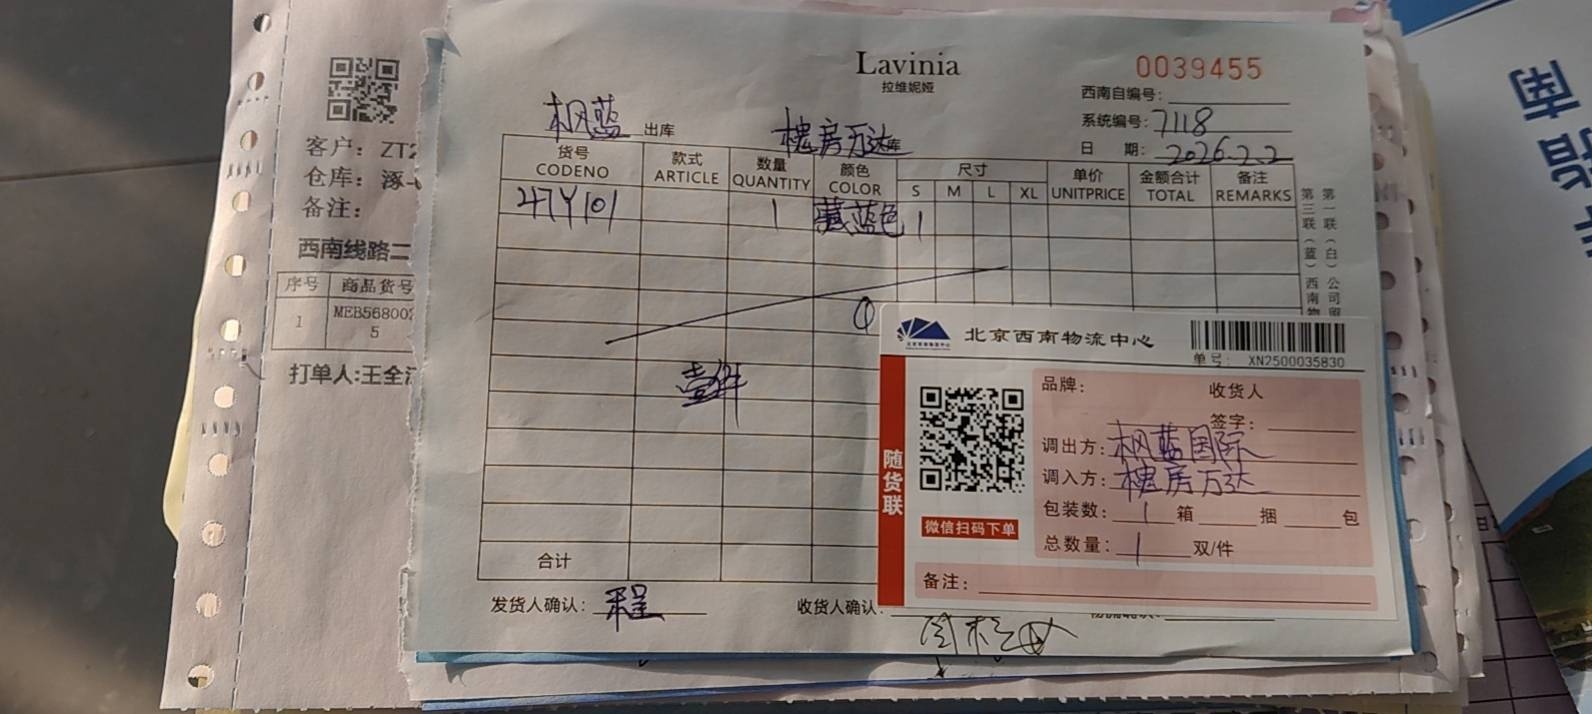 Lavinia
拉维妮娅
0039455
西南自编号:
系统编号: 7118
日 期: 2026.2.2
枫蓝 出库
槐房万达库
货号 CODENO
款式 ARTICLE
数量 QUANTITY
颜色 COLOR
尺寸
S M L XL
单价 UNITPRICE
金额合计 TOTAL
备注 REMARKS
47Y101 1 藏蓝色 1
壹件
合计
发货人确认: 程
收货人确认:
第一联(白)公司
第三联(蓝)西南物
北京西南物流中心
单号: XN2500035830
随货联
微信扫码下单
品牌:
收货人
签字:
调出方: 枫蓝国际
调入方: 槐房万达
包装数: 1 箱 捆 包
总数量: 1 双/件
备注:
客户: ZT2
仓库: 涿
备注:
西南线路二
序号 商品货号
1 MEB56800
5
打单人:王全
南